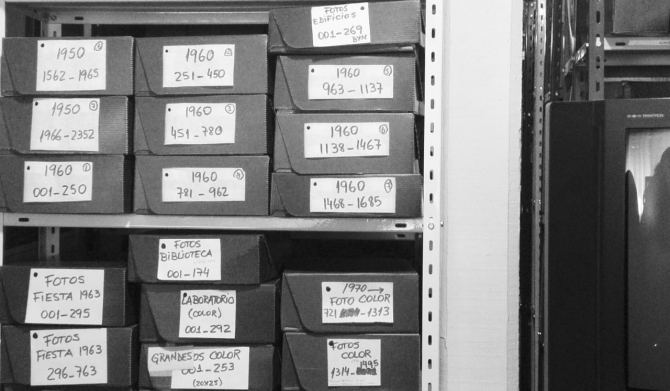 1950
1562-1965
1950
1966-2352
1960
001-250
1960
251-450
1960
451-780
1960
781-962
FOTOS
EDIFICIOS
001-269
BYN
1960
963-1137
1960
1138-1467
1960
1468-1685
FOTOS
FIESTA 1963
001-295
FOTOS
FIESTA 1963
296-763
FOTOS
BIBLIOTECA
001-174
LABORATORIO
(COLOR)
001-292
GRANDES COLOR
001-253
(20X25)
1970→
FOTO COLOR
721-1313
FOTOS
COLOR
1995
1314-
THOMSON